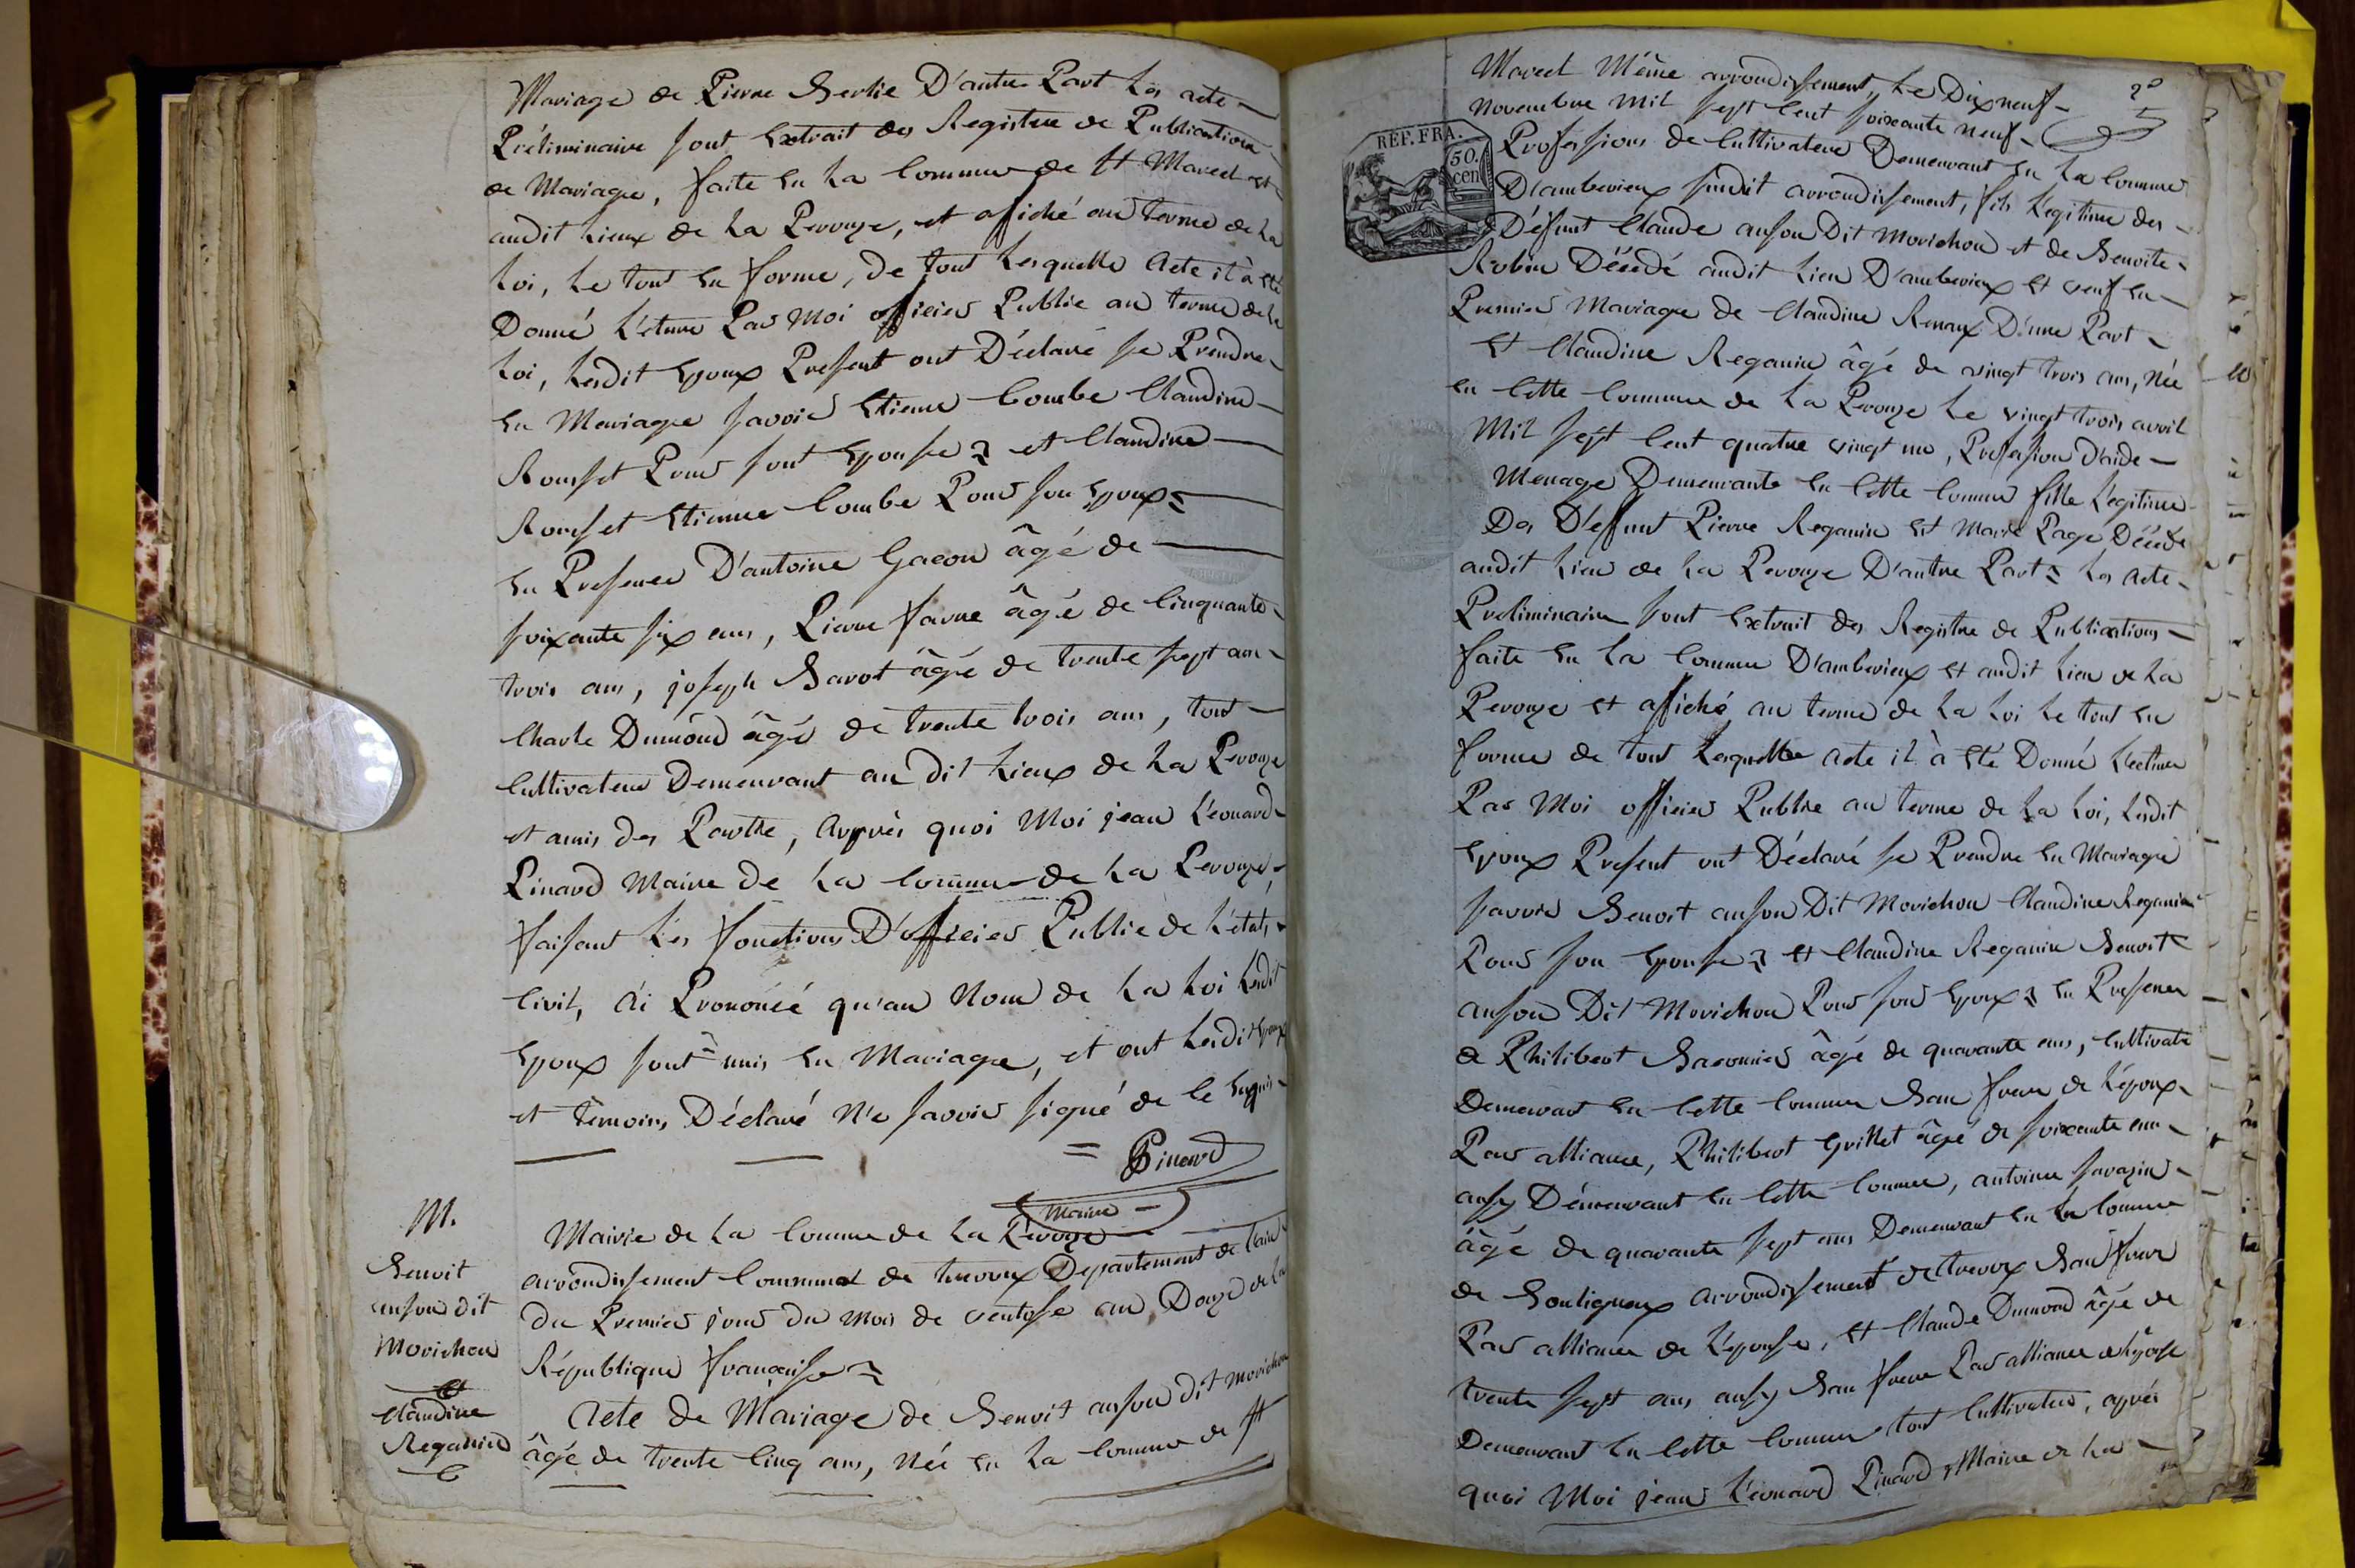 Mariage de Pierre Berlie D'autre Part les acte
Préliminaire sont Extrait des Registre de Publication
de Mariage, faite En la Commune de St Marcel et
audit Lieux de La Perouze, et affiché au terme de la
Loi, Le tout En forme, de tout Lesquelle acte il à Eté
Donné L'cture Par Moi officier Public au terme de la
Loi, Lesdit Epoux Present ont Déclaré se Prendre
En Mariage savoir Etienne Combe Claudine
Rousset Pour sont Epouse et Claudine
Rousset Etienne Combe Pour son Epoux
En Presence D'antoine Gacon âgé de
soixante six ans, Pierre favre âgé de Cinquante
trois ans, joseph Barot âgé de trente sept ans
Charle Dumônd âgé de trente trois ans, tout
Cultivateur Demeurant au dit Lieux de La Perouze
et amis des Partie, Apprès quoi Moi jean Léonard
Pinard Maire de La Commune de La Perouze,
faisant Les fonctions D'officier Public de L'état,
Civil, ai Prononcé qu'au Nom de La Loi Lesdit
Epoux sont unis En Mariage, et ont Lesdit Epoux
et temoins Déclaré Ne savoir signé de Ce Enquis
= Pinard
Maire
M.
Benoit
anson dit
Morichon
et
Claudine
Reganin
Mairie de La Commune de La Pérouze
arrondissement Communal de trevoux Departement de L'ain
du Premier jour du Mois de ventose an Douze de la
République francaise
Acte de Mariage de Benoit anson dit Morichon
âgé de trente Cinq ans, Née En La Commune de St
2º
REP. FRA.
50.
cen
Marcel Même arrondissement, Le Dix neuf
Novembre Mil sept Cent soixante neuf
Profession de Cultivateur Demeurant En La Commune
D'amberieux susdit arrondissement, fils Légitime des
Défunt Claude anson Dit Morichon et de Benoite
Robin Décedé audit Lieu D'amberieux Et veuf En
Premier Mariage de Claudine Renaux D'une Part
Et Claudine Reganin âgé de vingt trois ans, Née
En Cette Commune de La Perouze Le vingt trois avril
Mil sept Cent quatre vingt un, Profession d'aide
Menage Demeurante En Cette Commune fille Legitime
Des D'effunt Pierre Reganin Et Marie Page Décedé
audit Lieu de La Perouze D'autre Part Les acte
Preliminaire sont Extrait des Registre de Publications
faite En La Commune D'amberieux Et audit Lieu de La
Perouze Et affiché au terme de La Loi Le tout En
forme de tout Lesquelle acte il à Eté Donné Lecture
Par Moi officier Public au terme de La Loi, Lesdit
Epoux Present ont Déclaré se Prendre En Mariage
savoir Benoit anson Dit Morichon Claudine Reganin
Pour son Epouse Et Claudine Reganin Benoit
anson Dit Morichon Pour son Epoux En Presence
de Philibert Baconnier âgé de quarante ans, Cultivate
Demeurant En Cette Commune Bau frere de L'époux
Par alliance, Philibert Grillet âgé de soixante ans
ausy Démeurant En Cette Commune, antoine sarazin
âgé de quarante sept ans Demeurant En La Commune
de Bouligneux arrondissement de trevoux Bau frere
Par alliance de L'épouse, Et Claude Dumond âgé de
trente sept ans ausy Bau frere Par alliance de L'épouse
Demeurant En Cette Commune tout Cultivateur, après
quoi Moi jean Léonard Pinard, Maire de La